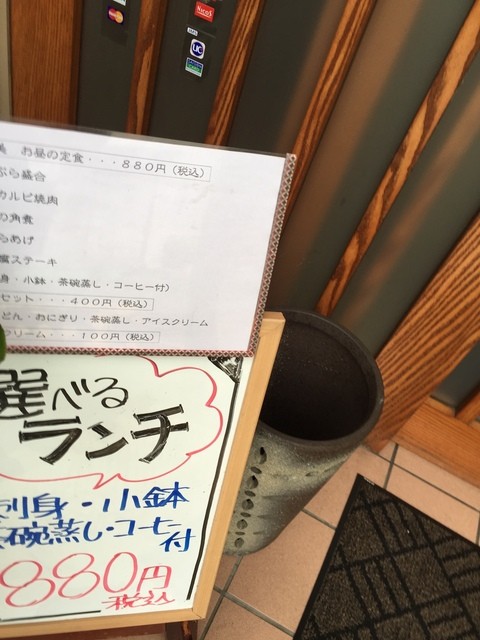 NICOS
UC
お昼の定食・・・880円（税込）
ぷら盛合
カルビ焼肉
の角煮
らあげ
腐ステーキ
身・小鉢・茶碗蒸し・コーヒー付）
セット・・・400円（税込）
どん・おにぎり・茶碗蒸し・アイスクリーム
リーム・・・100円（税込）
選べる
ランチ
刺身・小鉢
茶碗蒸し・コーヒー付
880円
税込